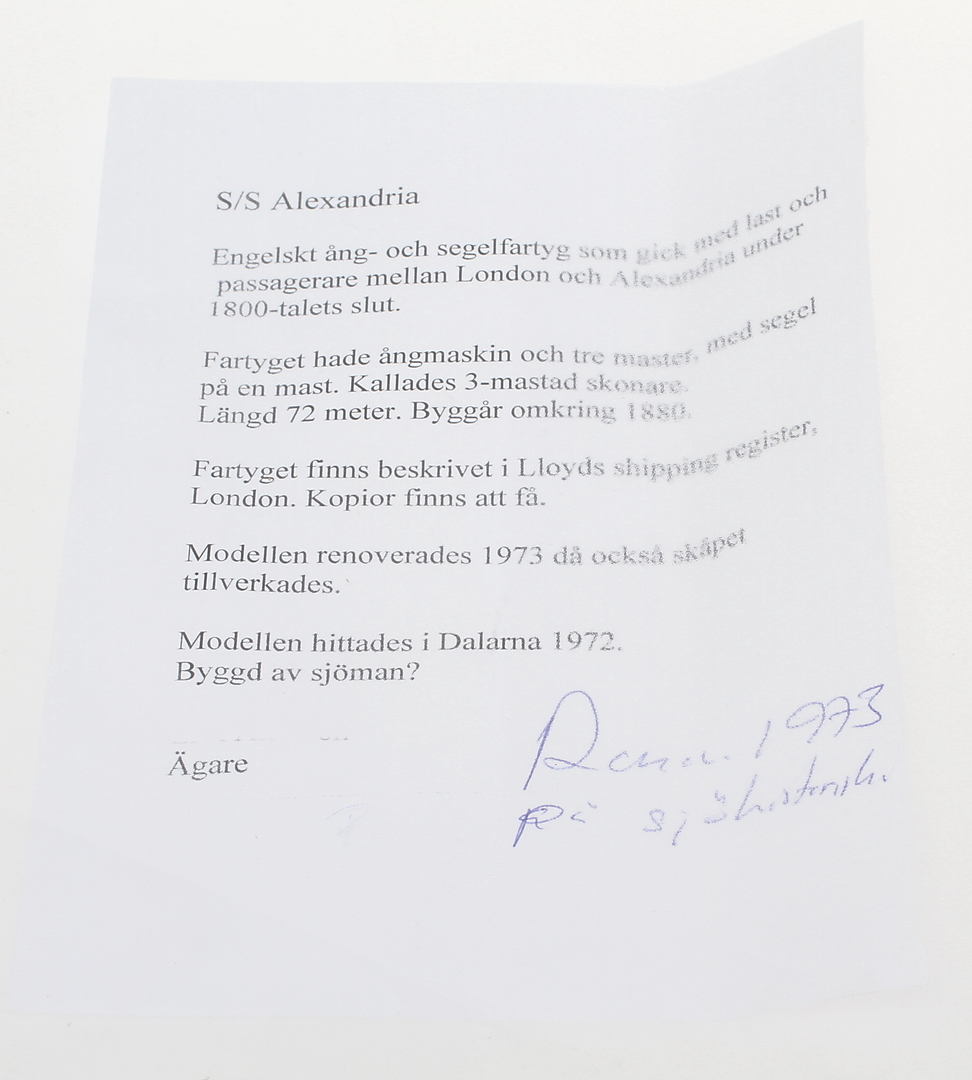 S/S Alexandria
Engelskt ång- och segelfartyg som gick med last och
passagerare mellan London och Alexandria under
1800-talets slut.
Fartyget hade ångmaskin och tre master, med segel
på en mast. Kallades 3-mastad skonare.
Längd 72 meter. Byggår omkring 1880.
Fartyget finns beskrivet i Lloyds shipping register,
London. Kopior finns att få.
Modellen renoverades 1973 då också skåpet
tillverkades.
Modellen hittades i Dalarna 1972.
Byggd av sjöman?
Ägare
1973
på sjöhistorisk.